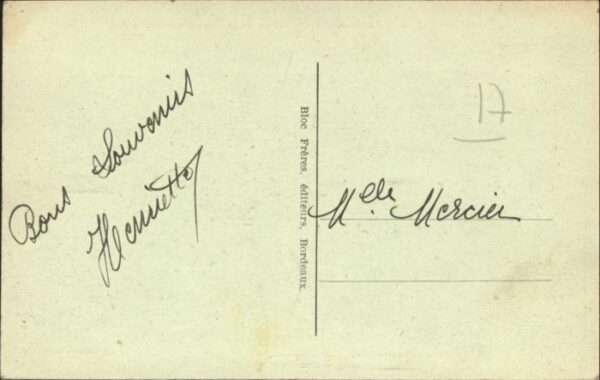 Bons Souvenirs
Henriette
Bloc Frères, éditeurs, Bordeaux.
17
Mlle. Mercier